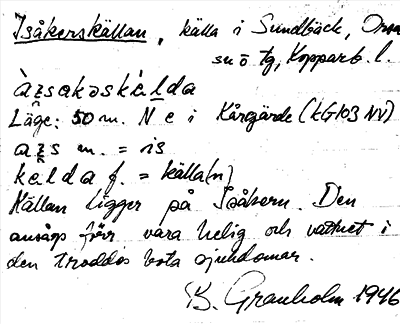 Isåkerskällan, källa i Sundbäck, Orsa
sn ö tg, Kopparb. l.
àzsakəskèlda
Läge: 50 m. N e i Kårgärde (KG103 NV)
azs m. = is
kèlda f. = källa(n)
Källan ligger på Isåkern. Den
ansågs förr vara helig och vattnet i
den troddes bota sjukdomar.
B. Granholm 1946